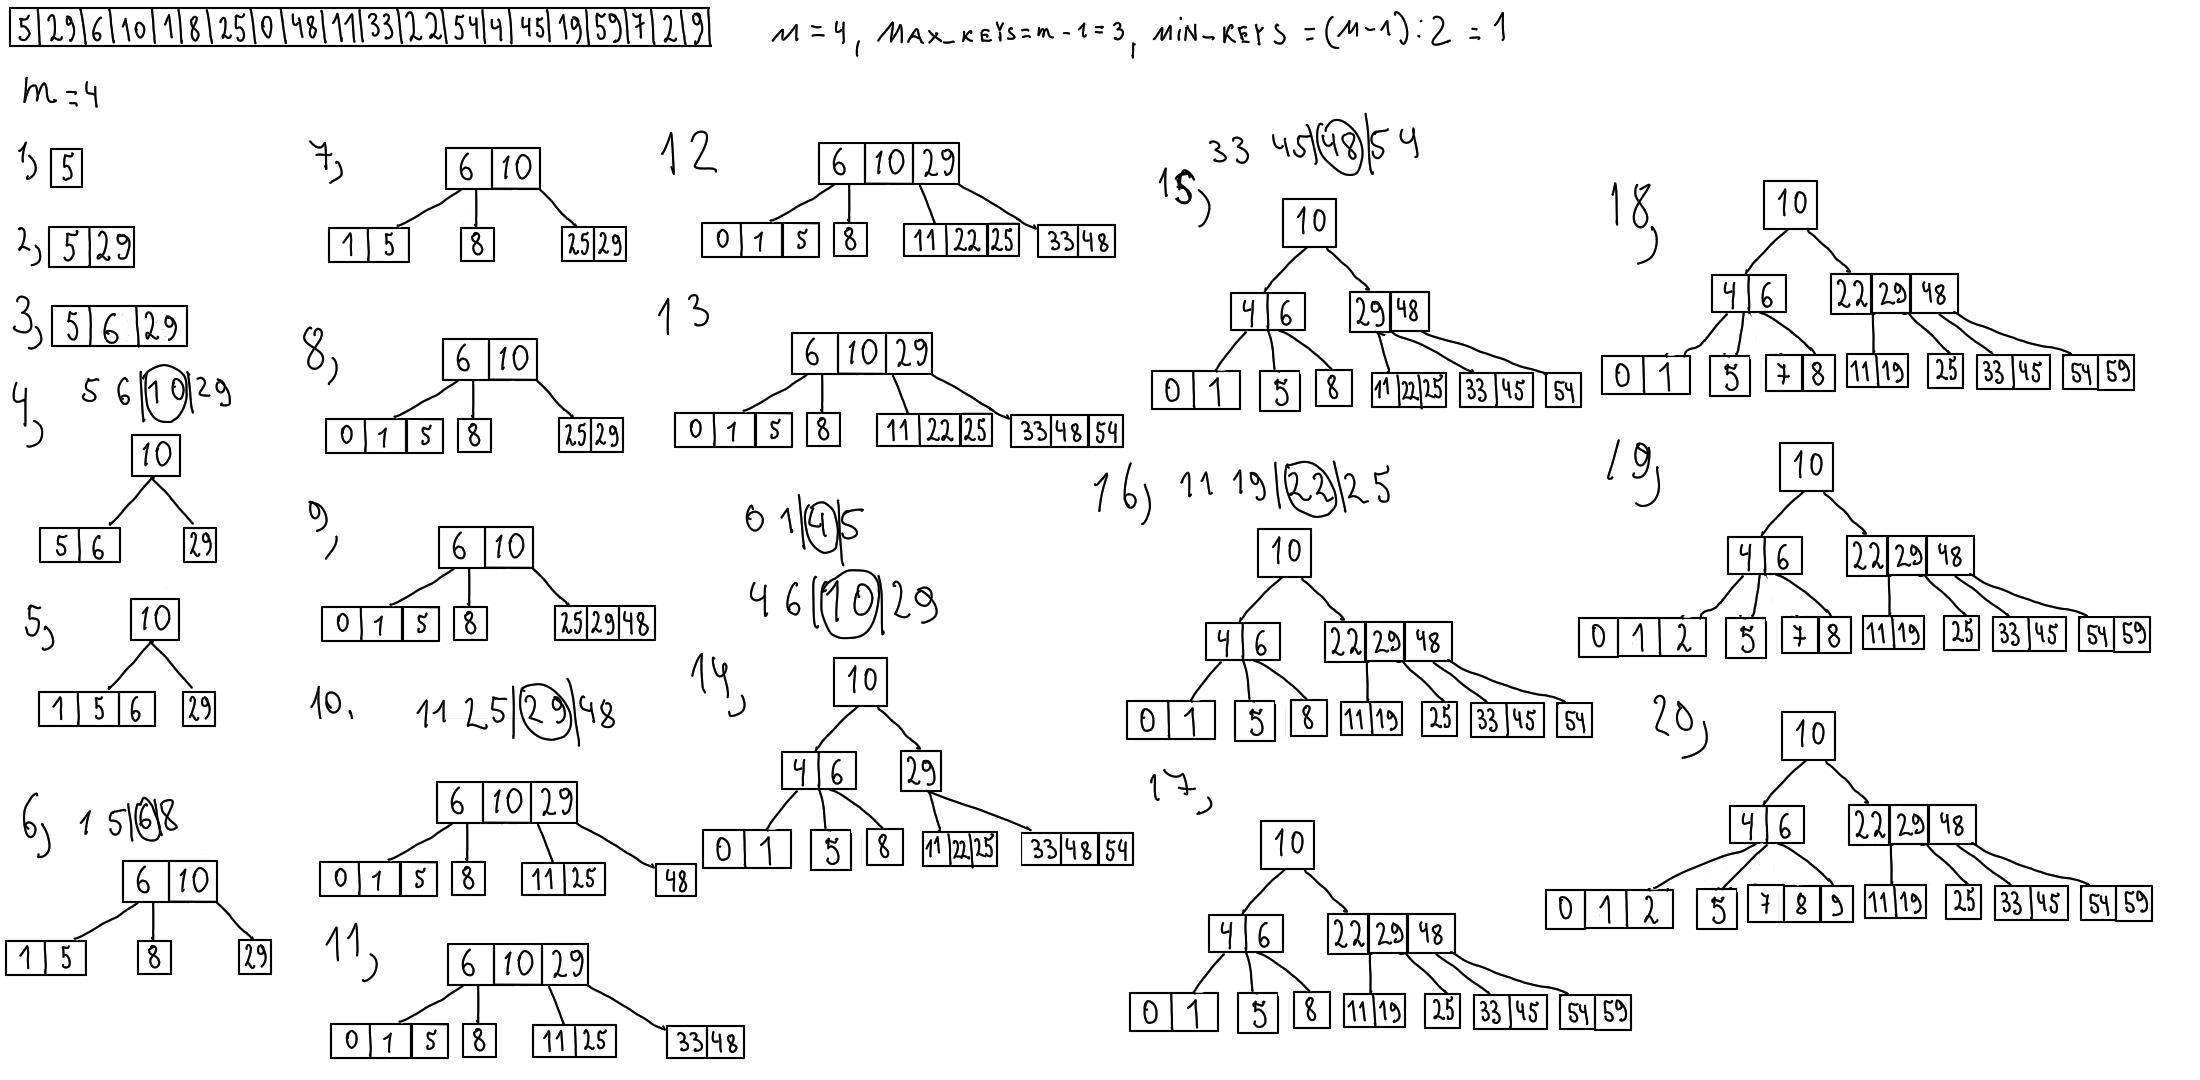 5 29 6 10 1 8 25 0 48 11 33 22 54 4 45 19 59 7 2 9
m = 4, MAX_KEYS = m - 1 = 3, MIN_KEYS = (m-1) : 2 = 1
m = 4
1) 5
2) 5 29
3) 5 6 29
4) 5 6 | 10 | 29
10
5 6 29
5) 10
1 5 6 29
6) 1 5 | 6 | 8
6 10
1 5 8 29
7) 6 10
1 5 8 25 29
8) 6 10
0 1 5 8 25 29
9) 6 10
0 1 5 8 25 29 48
10. 11 25 | 29 | 48
6 10 29
0 1 5 8 11 25 48
11) 6 10 29
0 1 5 8 11 25 33 48
12 6 10 29
0 1 5 8 11 22 25 33 48
13 6 10 29
0 1 5 8 11 22 25 33 48 54
0 1 | 4 | 5
4 6 | 10 | 29
14) 10
4 6 29
0 1 5 8 11 22 25 33 48 54
15) 33 45 | 48 | 54
10
4 6 29 48
0 1 5 8 11 22 25 33 45 54
16) 11 19 | 22 | 25
10
4 6 22 29 48
0 1 5 8 11 19 25 33 45 54
17) 10
4 6 22 29 48
0 1 5 8 11 19 25 33 45 54 59
18) 10
4 6 22 29 48
0 1 5 7 8 11 19 25 33 45 54 59
19) 10
4 6 22 29 48
0 1 2 5 7 8 11 19 25 33 45 54 59
20) 10
4 6 22 29 48
0 1 2 5 7 8 9 11 19 25 33 45 54 59